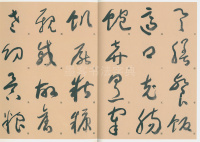 具膳餐飯
適口充腸
飽飫烹宰
飢厭糟糠
親戚故舊
老少異糧